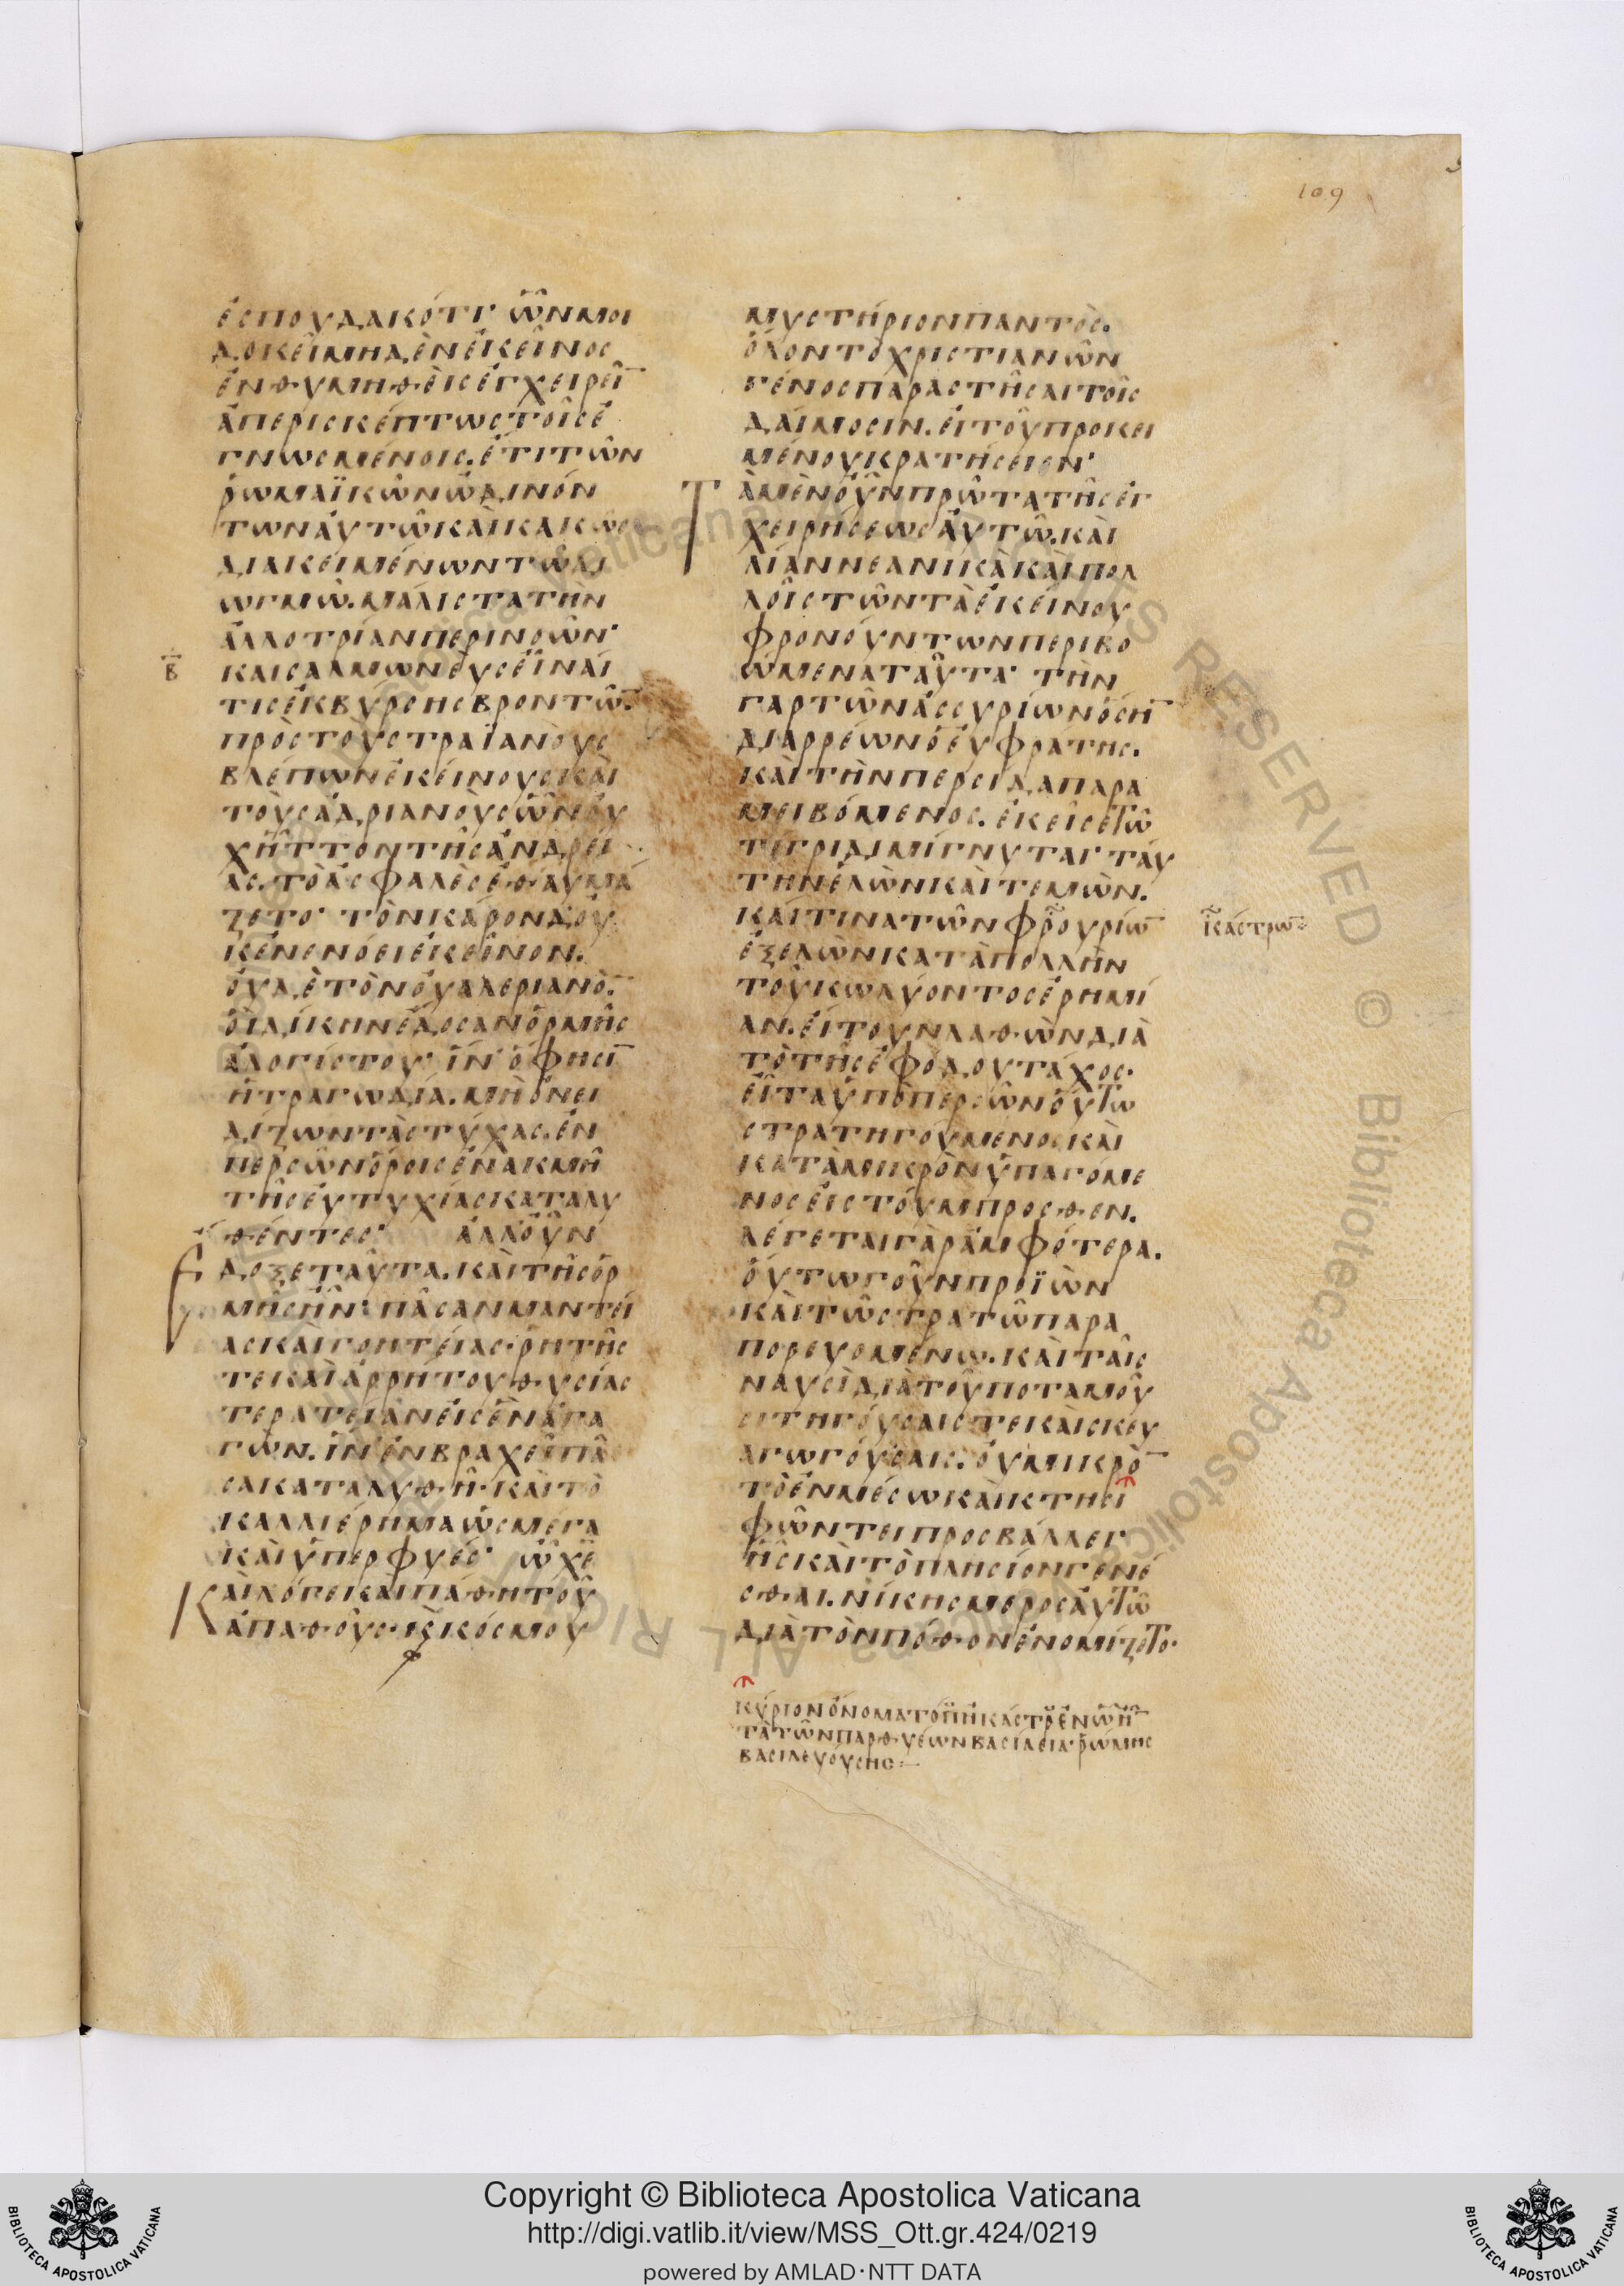 109
ἐσπουδακότι· ὧν μοι
δοκεῖ μηδὲν ἐκεῖνος
ἐνθυμηθεὶς ἐγχειρεῖ
ἀπερισκέπτως τοῖς ἐ
γνωσμένοις. ἔτι τῶν
ῥωμαϊκῶν ὠδινόν
των αὐτῶ καὶ κακῶς
διακειμένων τῶ δι
ωγμῶ. μάλιστα τὴν
ἀλλοτρίαν περινοῶν·
καὶ σαλμωνεὺς εἶναί
τις ἐκ βύρσης βροντῶν.
πρὸς τοὺς τραϊανοὺς
βλέπων ἐκείνους καὶ
τοὺς ἀδριανοὺς ὧν οὐ
χ ἧττον τῆς ἀνδρεί
ας. τὸ ἀσφαλὲς ἐθαυμά
ζετο· τὸν κάρον δ' οὐ
κ ἐνενόει ἐκεῖνον.
οὐδὲ τὸν οὐαλεριανὸν.
οἳ δίκην ἔδοσαν ὁρμῆς
ἀλογίστου· ἵν' ὅ φησιν
ἡ τραγωδία. μὴ ὀνει
δίζων τὰς τύχας. ἐν
περσῶν ὅροις ἐν ἀκμῆ
τῆς εὐτυχίας καταλυ
θέντες· ἀλλ' οὖν ἔ
δοξε ταῦτα. καὶ τῆς ὁρ
μῆς ἦν· πᾶσαν μαντεί
ας καὶ γοητείας· ῥητῆς
τε καὶ ἀρρήτου θυσίας
τερατείαν εἰς ἓν ἀγα
γὼν. ἵν' ἐν βραχεῖ πᾶ
σα καταλυθῆ· καὶ τὸ
καλλιέρημα ὡς μέγα
καὶ ὑπερφυές· ὦ χ̅ε̅
καὶ λόγε καὶ πάθη τοῦ
ἀπαθοῦς. καὶ κόσμου
β
μυστήριον παντὸς.
ὅλον τὸ χριστιανῶν
γένος παραστῆσαι τοῖς
δαίμοσιν. εἰ τοῦ προκει
μένου κρατήσειεν·
Τὰ μὲν οὖν πρῶτα τῆς ἐγ
χειρήσεως αὐτῶ. καὶ
λίαν νεανικὰ καὶ πολ
λοῖς τῶν τὰ ἐκείνου
φρονούντων περιβο
ώμενα ταῦτα· τὴν
γὰρ τῶν ἀσσυρίων ὅσην
διαρρέων ὁ εὐφράτης.
καὶ τὴν περσίδα παρα
μειβόμενος. ἐκεῖσε τῶ
τίγριδι μίγνυται· ταύ
την ἑλὼν καὶ τεμὼν.
καί τινα τῶν φρουρίων
ἐξελὼν κατὰ πολλὴν
τοῦ κωλύοντος ἐρημί
αν. εἴτ' οὖν λαθὼν διὰ
τὸ τῆς ἐφόδου τάχος·
εἴτα ὑπὸ περσῶν οὕτω
στρατηγούμενος καὶ
κατὰ μικρὸν ὑπαγόμε
νος εἰς τοὔμπροσθεν.
λέγεται γὰρ ἀμφότερα.
οὕτω γοῦν προϊὼν
καὶ τῶ στρατῶ παρα
πορευομένω. καὶ ταῖς
ναυσὶ διὰ τοῦ ποταμοῦ
σιτηγούσαις τε καὶ σκευ
αγωγούσαις. οὐ μικρὸν
τὸ ἐν μέσω καὶ κτησι
φῶντι προσβάλλει·
ἧς καὶ τὸ πλησίον γενέ
σθαι. νίκης μέρος αὐτῶ
διὰ τὸν πόθον ἐνομίζετο·
κάστρων
κύριον ὄνομα τόπου ἢ κάστρου ἐν ὧ ἦν
τὰ τῶν παρθυέων βασίλεια· ῥώμης
βασιλευούσης
Copyright © Biblioteca Apostolica Vaticana
http://digi.vatlib.it/view/MSS_Ott.gr.424/0219
powered by AMLAD·NTT DATA
BIBLIOTECA APOSTOLICA VATICANA
BIBLIOTECA APOSTOLICA VATICANA